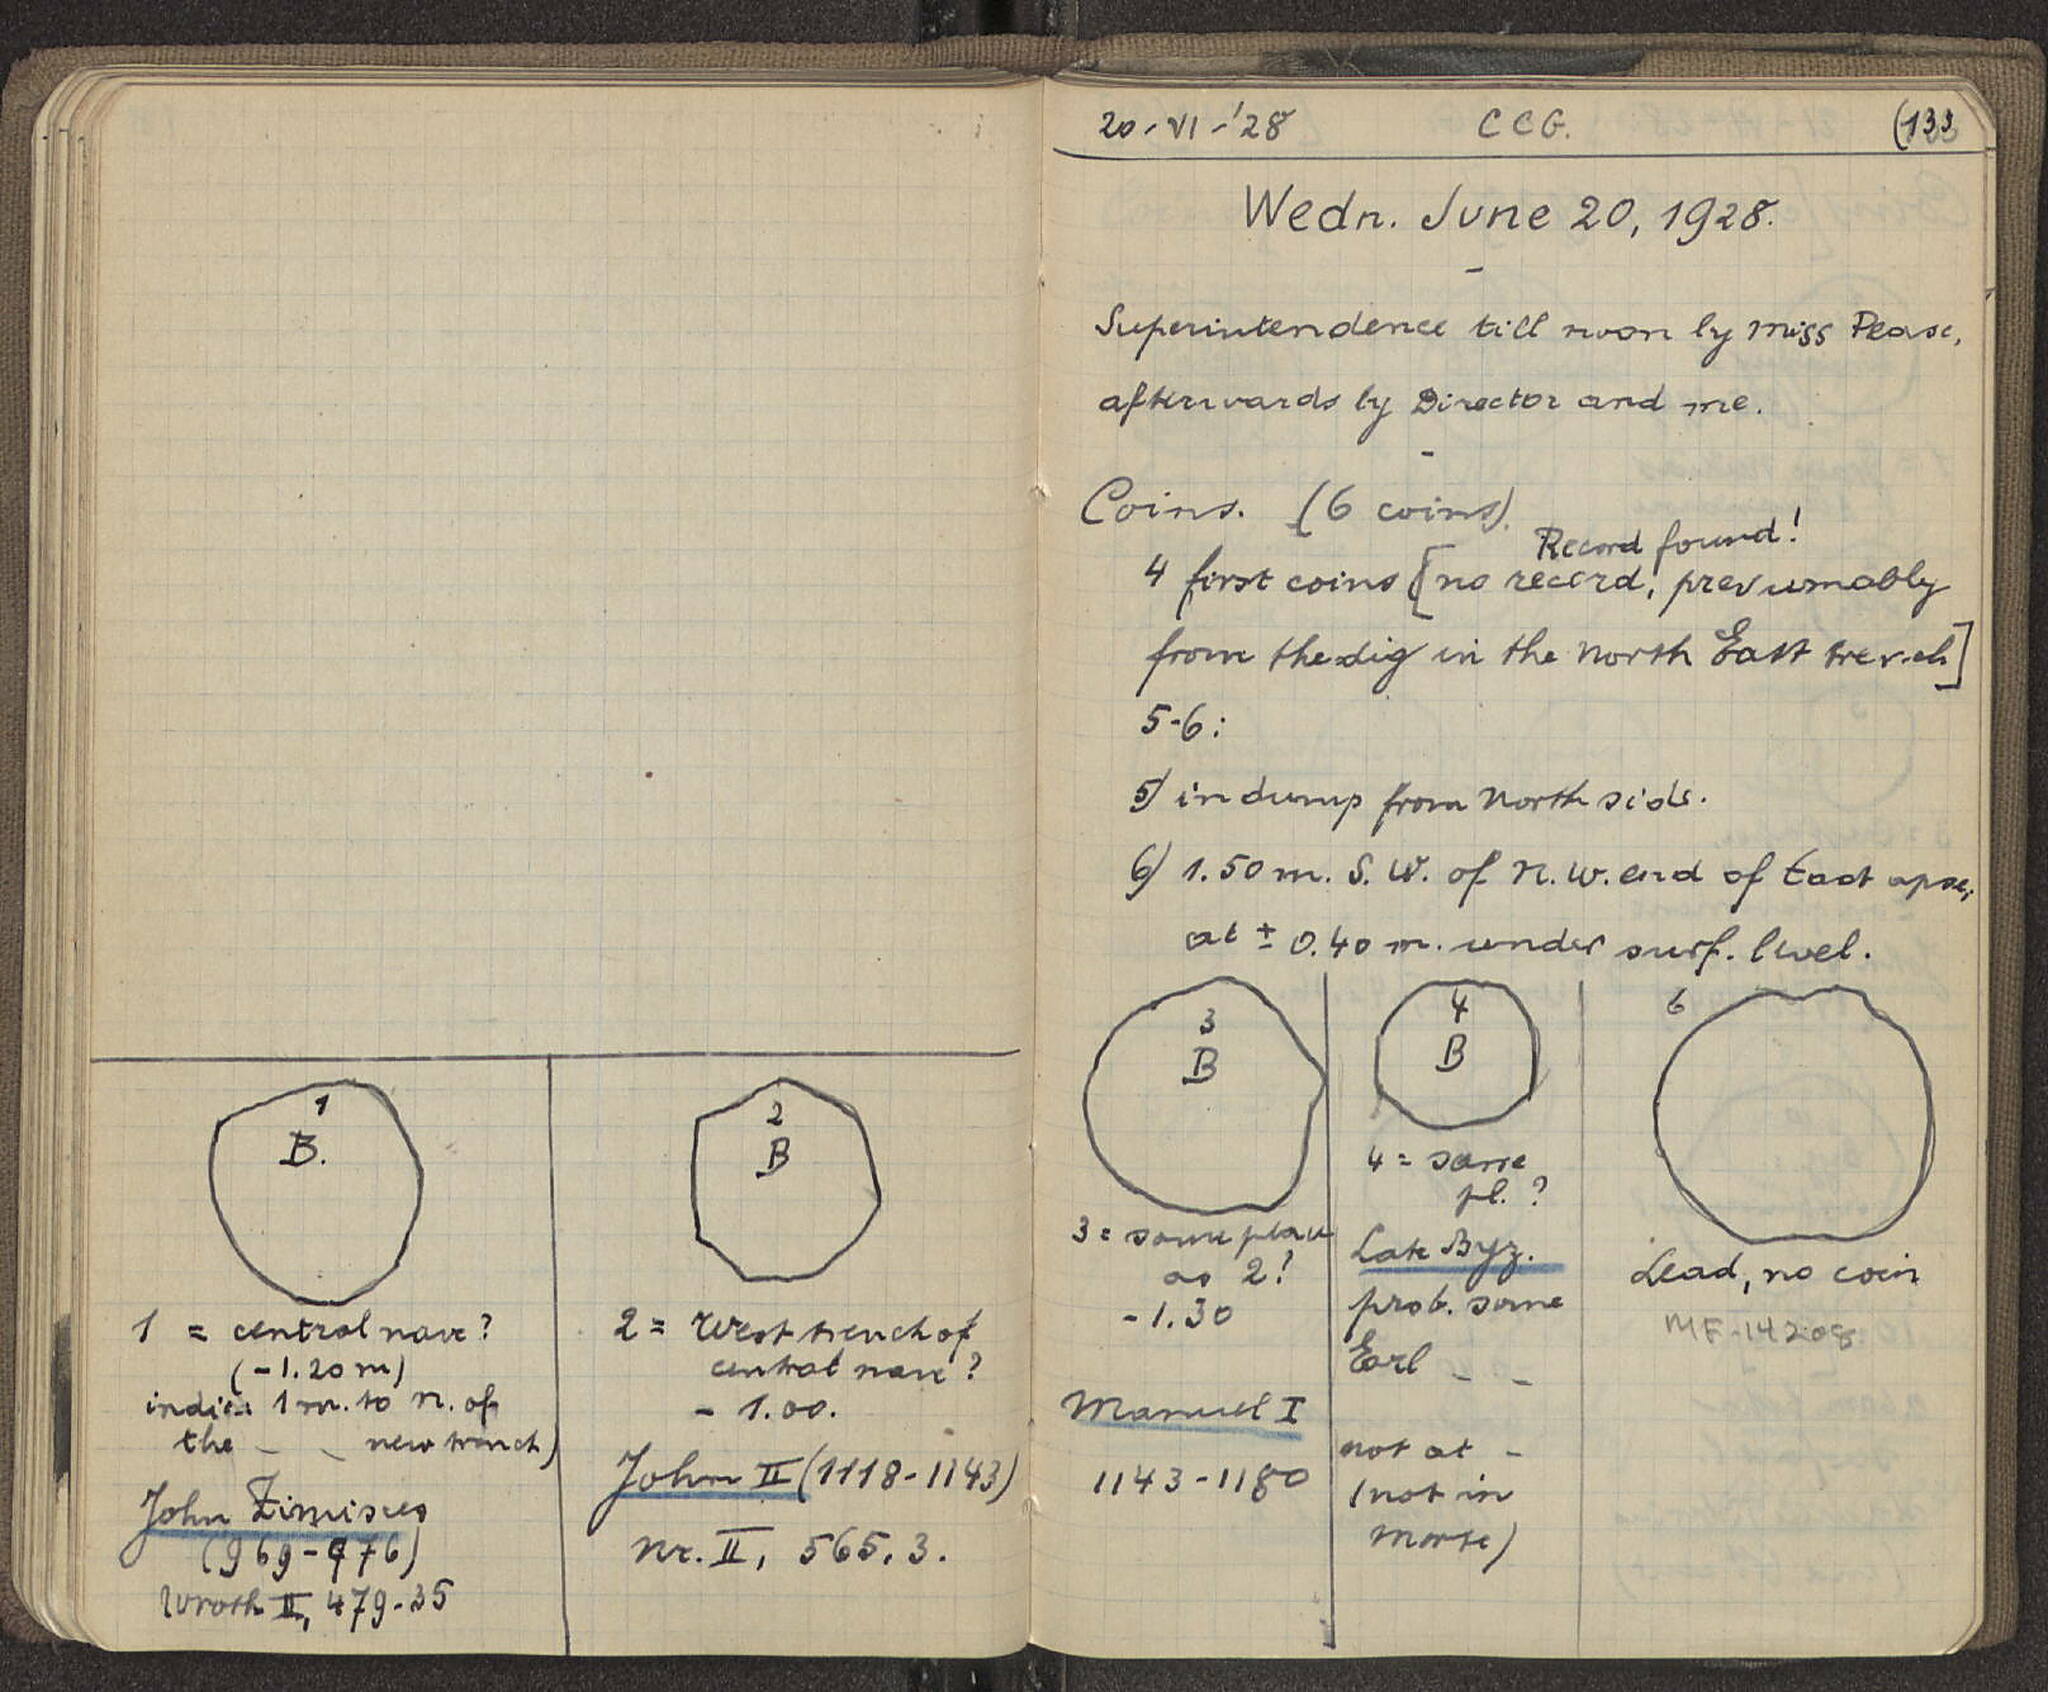 20-VI-'28 CCG. (133
Wedn. June 20, 1928.
-
Superintendence till noon by Miss Pease,
afterwards by Director and me.
-
Coins. (6 coins).
Record found!
4 first coins [no record, presumably
from the dig in the North East trench]
5-6:
5) in dump from North side.
6) 1.50 m. S.W. of N.W. end of East apse,
at ± 0.40 m. under surf. level.
1
B.
1 = central nave?
(-1.20 m)
1 m. to N. of
the - - new trench)
John Zimisces
(969-976)
Wroth II, 479-35
2
B
2 = West trench of
central nave?
- 1.00.
John II (1118-1143)
Nr. II, 565.3.
3
B
3 = same place
as 2!
-1.30
Manuel I
1143-1180
4
B
4 = same
pl. ?
Late Byz.
prob. same
- -
not at -
(not in
6
Lead, no coin
MF-14208